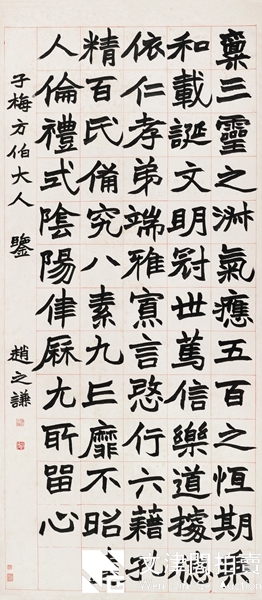 稟三靈之淑氣應五百之恆期乘
和載誕文明冠世篤信樂道據德
依仁孝弟端雅寡言愨行六藉孔
精百氏備究八素九丘靡不昭
人倫禮式陰陽律厤尤所留心
子梅方伯大人 鑒 趙之謙
文津閣拍賣